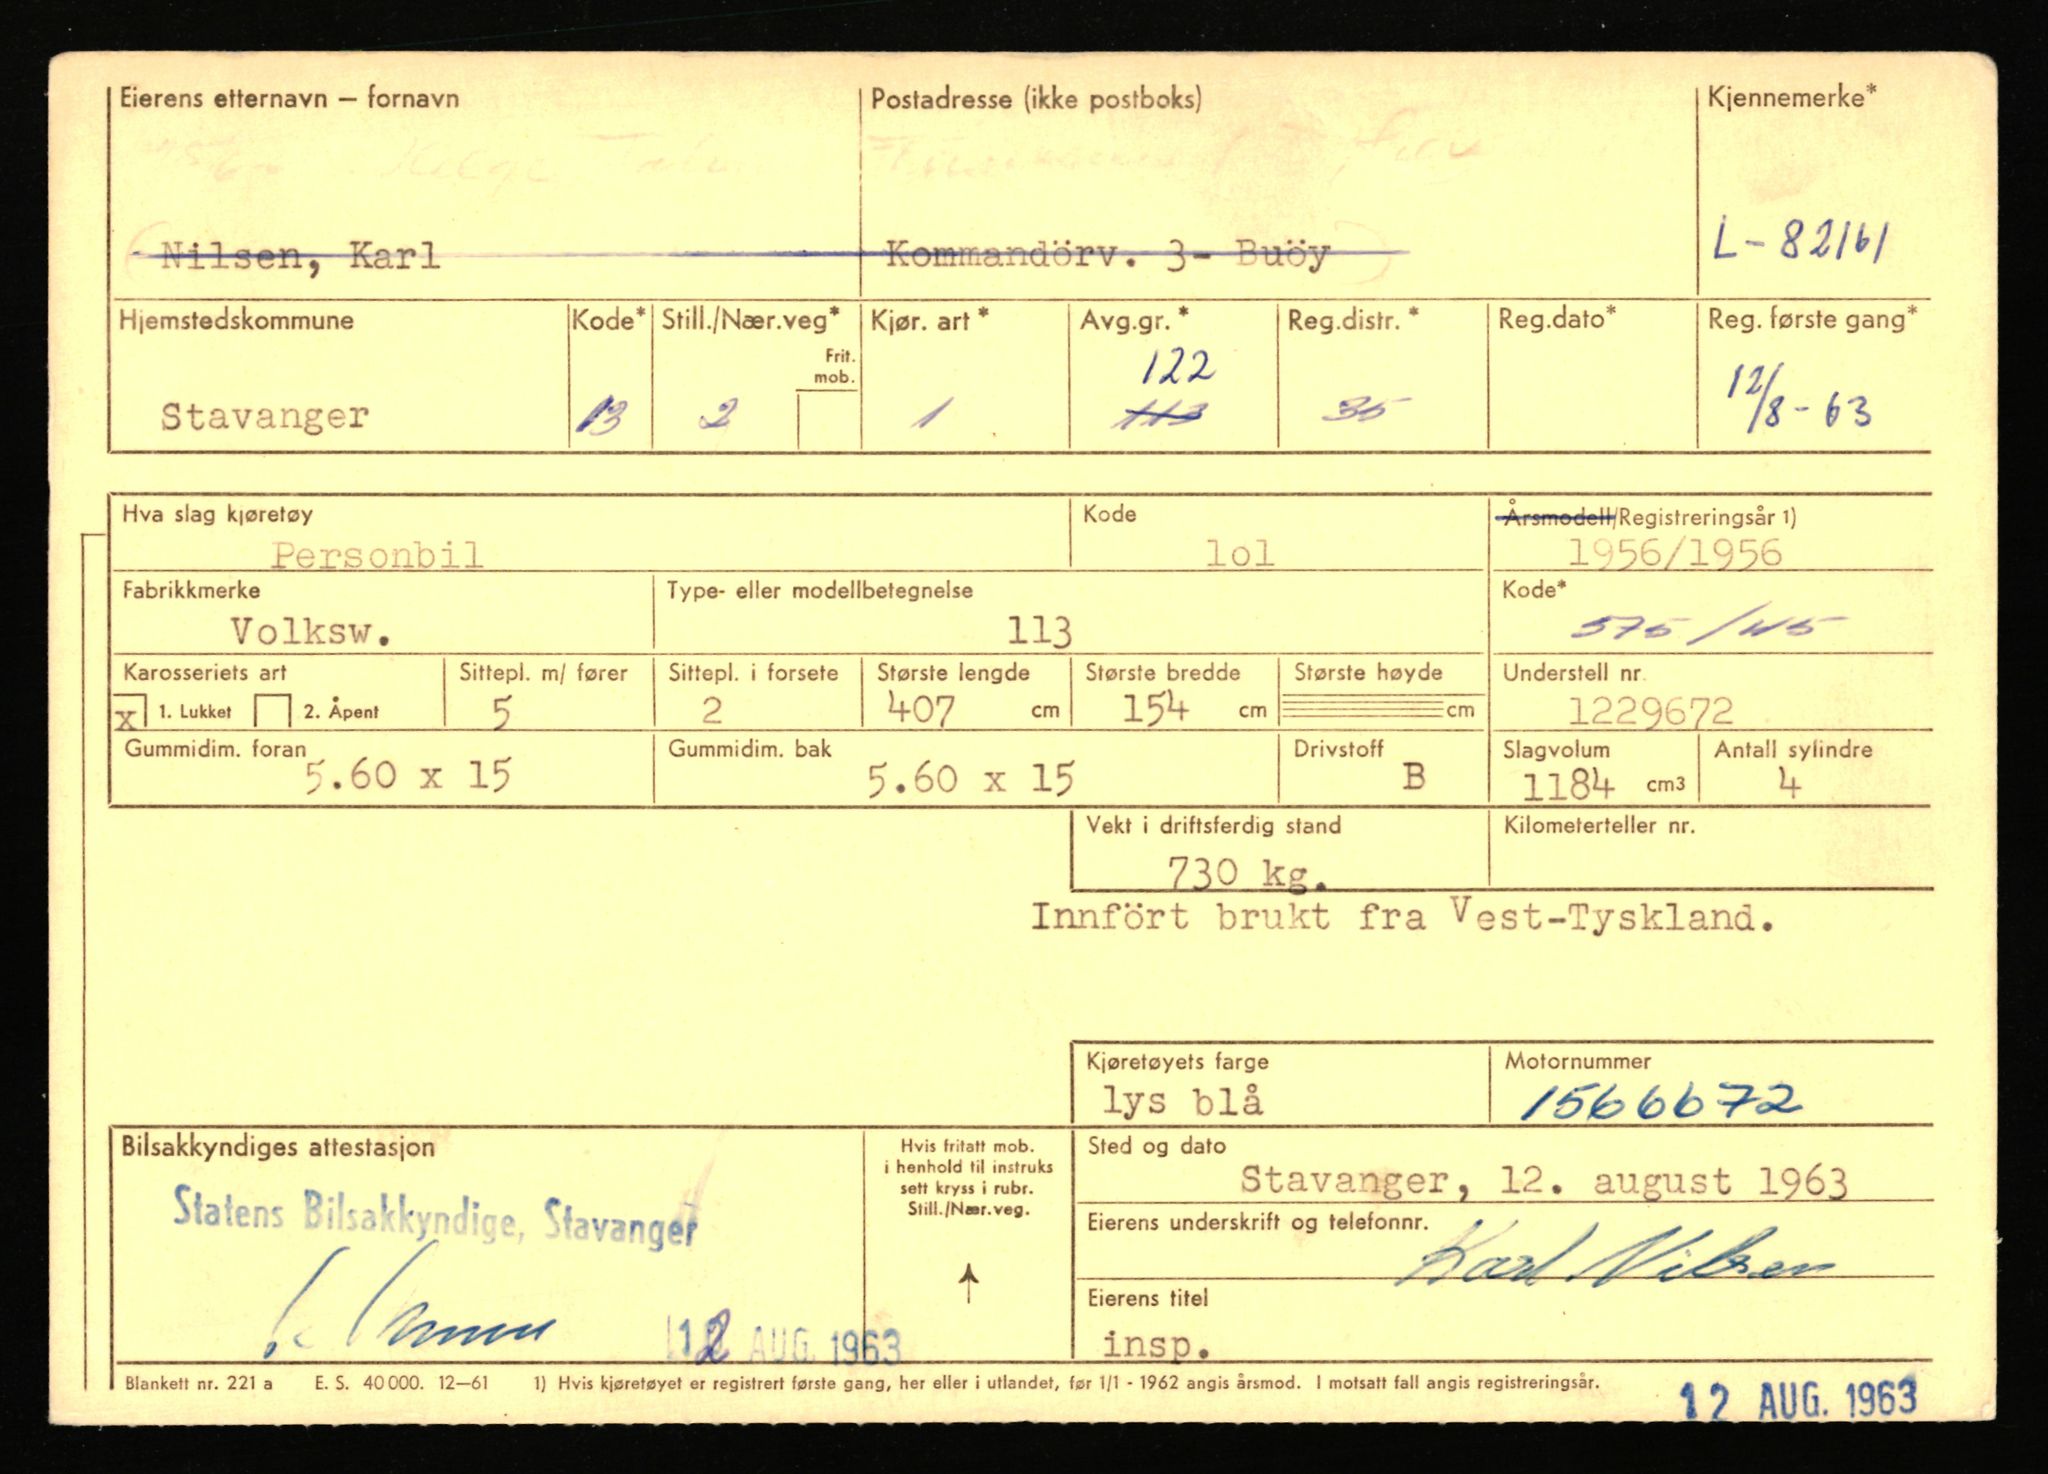 Eierens etternavn – fornavn Postadresse (ikke postboks) Kjennemerke*
Helge
Nilsen, Karl Kommandörv. 3- Buöy L-82161
Hjemstedskommune Kode* Still./Nær.veg* Kjør. art* Avg.gr.* Reg.distr.* Reg.dato* Reg. første gang*
Frit. mob. 122
Stavanger 13 2 1 113 35 12/8-63
Hva slag kjøretøy Kode Årsmodell/Registreringsår 1)
Personbil lol 1956/1956
Fabrikkmerke Type- eller modellbetegnelse Kode*
Volksw. 113 575/
Karosseriets art Sittepl. m/ fører Sittepl. i forsete Største lengde Største bredde Største høyde Understell nr.
x 1. Lukket 2. Åpent 5 2 407 cm 154 cm cm 1229672
Gummidim. foran Gummidim. bak Drivstoff Slagvolum Antall sylindre
5.60 x 15 5.60 x 15 B 1184 cm3 4
Vekt i driftsferdig stand Kilometerteller nr.
730 kg.
Innfört brukt fra Vest-Tyskland.
Kjøretøyets farge Motornummer
lys blå 1566672
Bilsakkyndiges attestasjon Hvis fritatt mob. i henhold til instruks sett kryss i rubr. Still./Nær.veg. Sted og dato
Stavanger, 12. august 1963
Statens Bilsakkyndige, Stavanger
Eierens underskrift og telefonnr.
Karl Nilsen
Eierens titel
12 AUG. 1963 insp.
Blankett nr. 221 a E. S. 40 000. 12–61 1) Hvis kjøretøyet er registrert første gang, her eller i utlandet, før 1/1 - 1962 angis årsmod. I motsatt fall angis registreringsår.
12 AUG. 1963